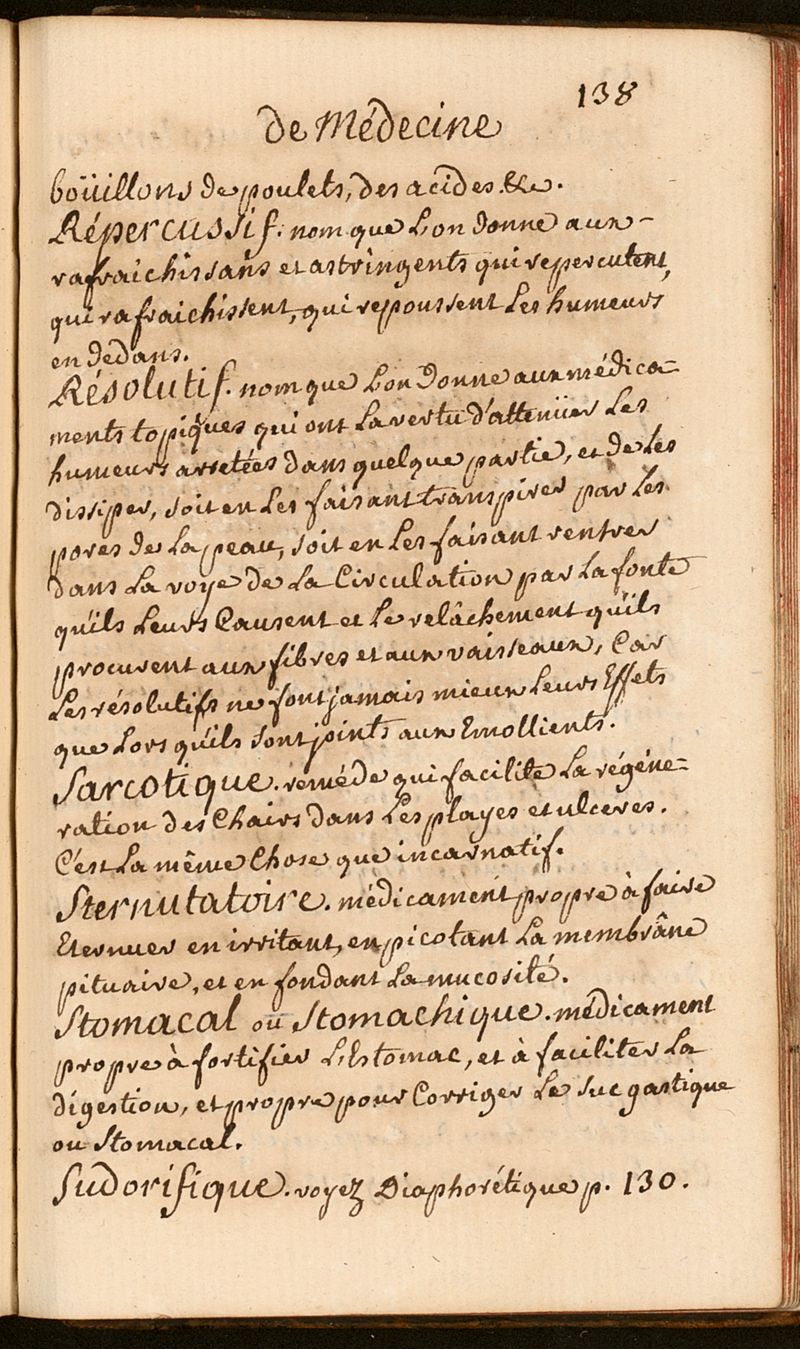 138
de Médecine
boüillons de poulets, des acides &c.
Répercussif. nom que l'on donne aux
rafraichissans et astringents qui repercutent,
qui rafraichissent, qui repoussent les humeurs
en dedans.
Résolutif. nom que l'on donne aux médica-
ments topiques qui ont la vertu d'attenüer les
humeurs arretées dans quelque partie, et de les
dissiper, soit en les faisant transpirer par les
pores de la peau, soit en les faisant rentrer
dans la voye de la Circulation par la fonte
qu'ils leurs Causent et le relâchement qu'ils
procurent aux fibres et aux vaisseaux, Car
les résolutifs ne font jamais mieux leurs Effets
que lors qu'ils sont joints aux Emollients.
Sarcotique. reméde qui facilite la régéne-
ration des Chairs dans les playes et ulceres.
C'est la même Chose que incarnatif.
Sternutatoire. médicament propre à faire
Eternuer en irritant, en picotant la membrâne
pituaire, et en fondant la mucosité.
Stomacal ou Stomachique. médicament
propre à fortifier l'Estomac, et à faciliter la
digestion, et propre pour Corriger le suc gastique
ou Stomacal.
Sudorifique. voyez Diaphorétique p. 130.